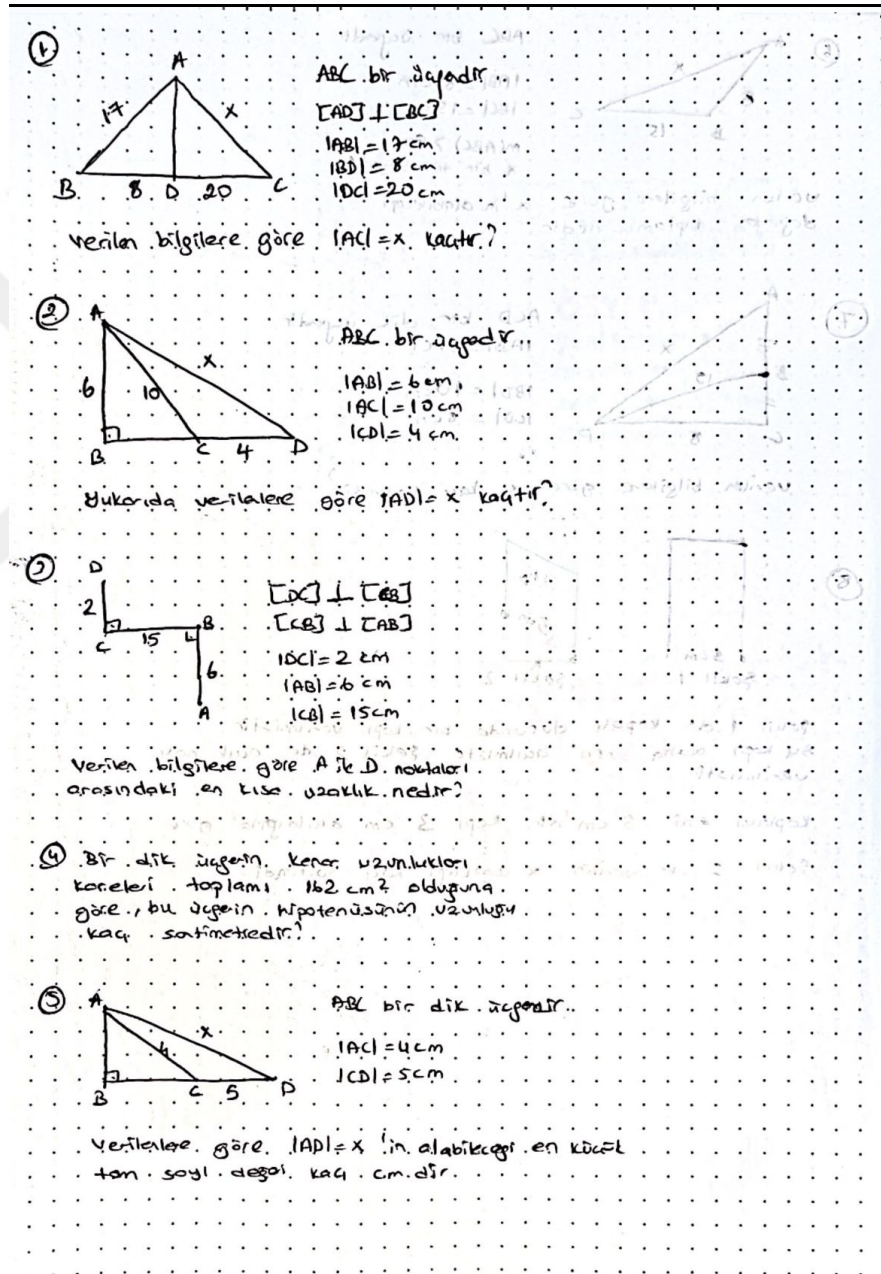 1
A
17
x
B 8 D 20 C
ABC bir üçgendir.
[AD] ⊥ [BC]
|AB| = 17 cm
|BD| = 8 cm
|DC| = 20 cm
Verilen bilgilere göre |AC| = x kaçtır?
2
A
6
10
x
B C 4 D
ABC bir üçgendir.
|AB| = 6 cm
|AC| = 10 cm
|CD| = 4 cm
Yukarıda verilelere göre |AD| = x kaçtır?
3
D
2
C 15 B
6
A
[DC] ⊥ [CB]
[CB] ⊥ [AB]
|DC| = 2 cm
|AB| = 6 cm
|CB| = 15 cm
Verilen bilgilere göre A ile D noktaları
arasındaki en kısa uzaklık nedir?
4 Bir dik üçgenin kenar uzunlukları
kareleri toplamı 162 cm² olduğuna
göre, bu üçgenin hipotenüsünün uzunluğu
kaç santimetredir?
5
A
4
x
B C 5 D
ABC bir dik üçgendir.
|AC| = 4 cm
|CD| = 5 cm
Verilenlere göre |AD| = x 'in alabileceği en küçük
tam sayı değeri kaç cm dir.